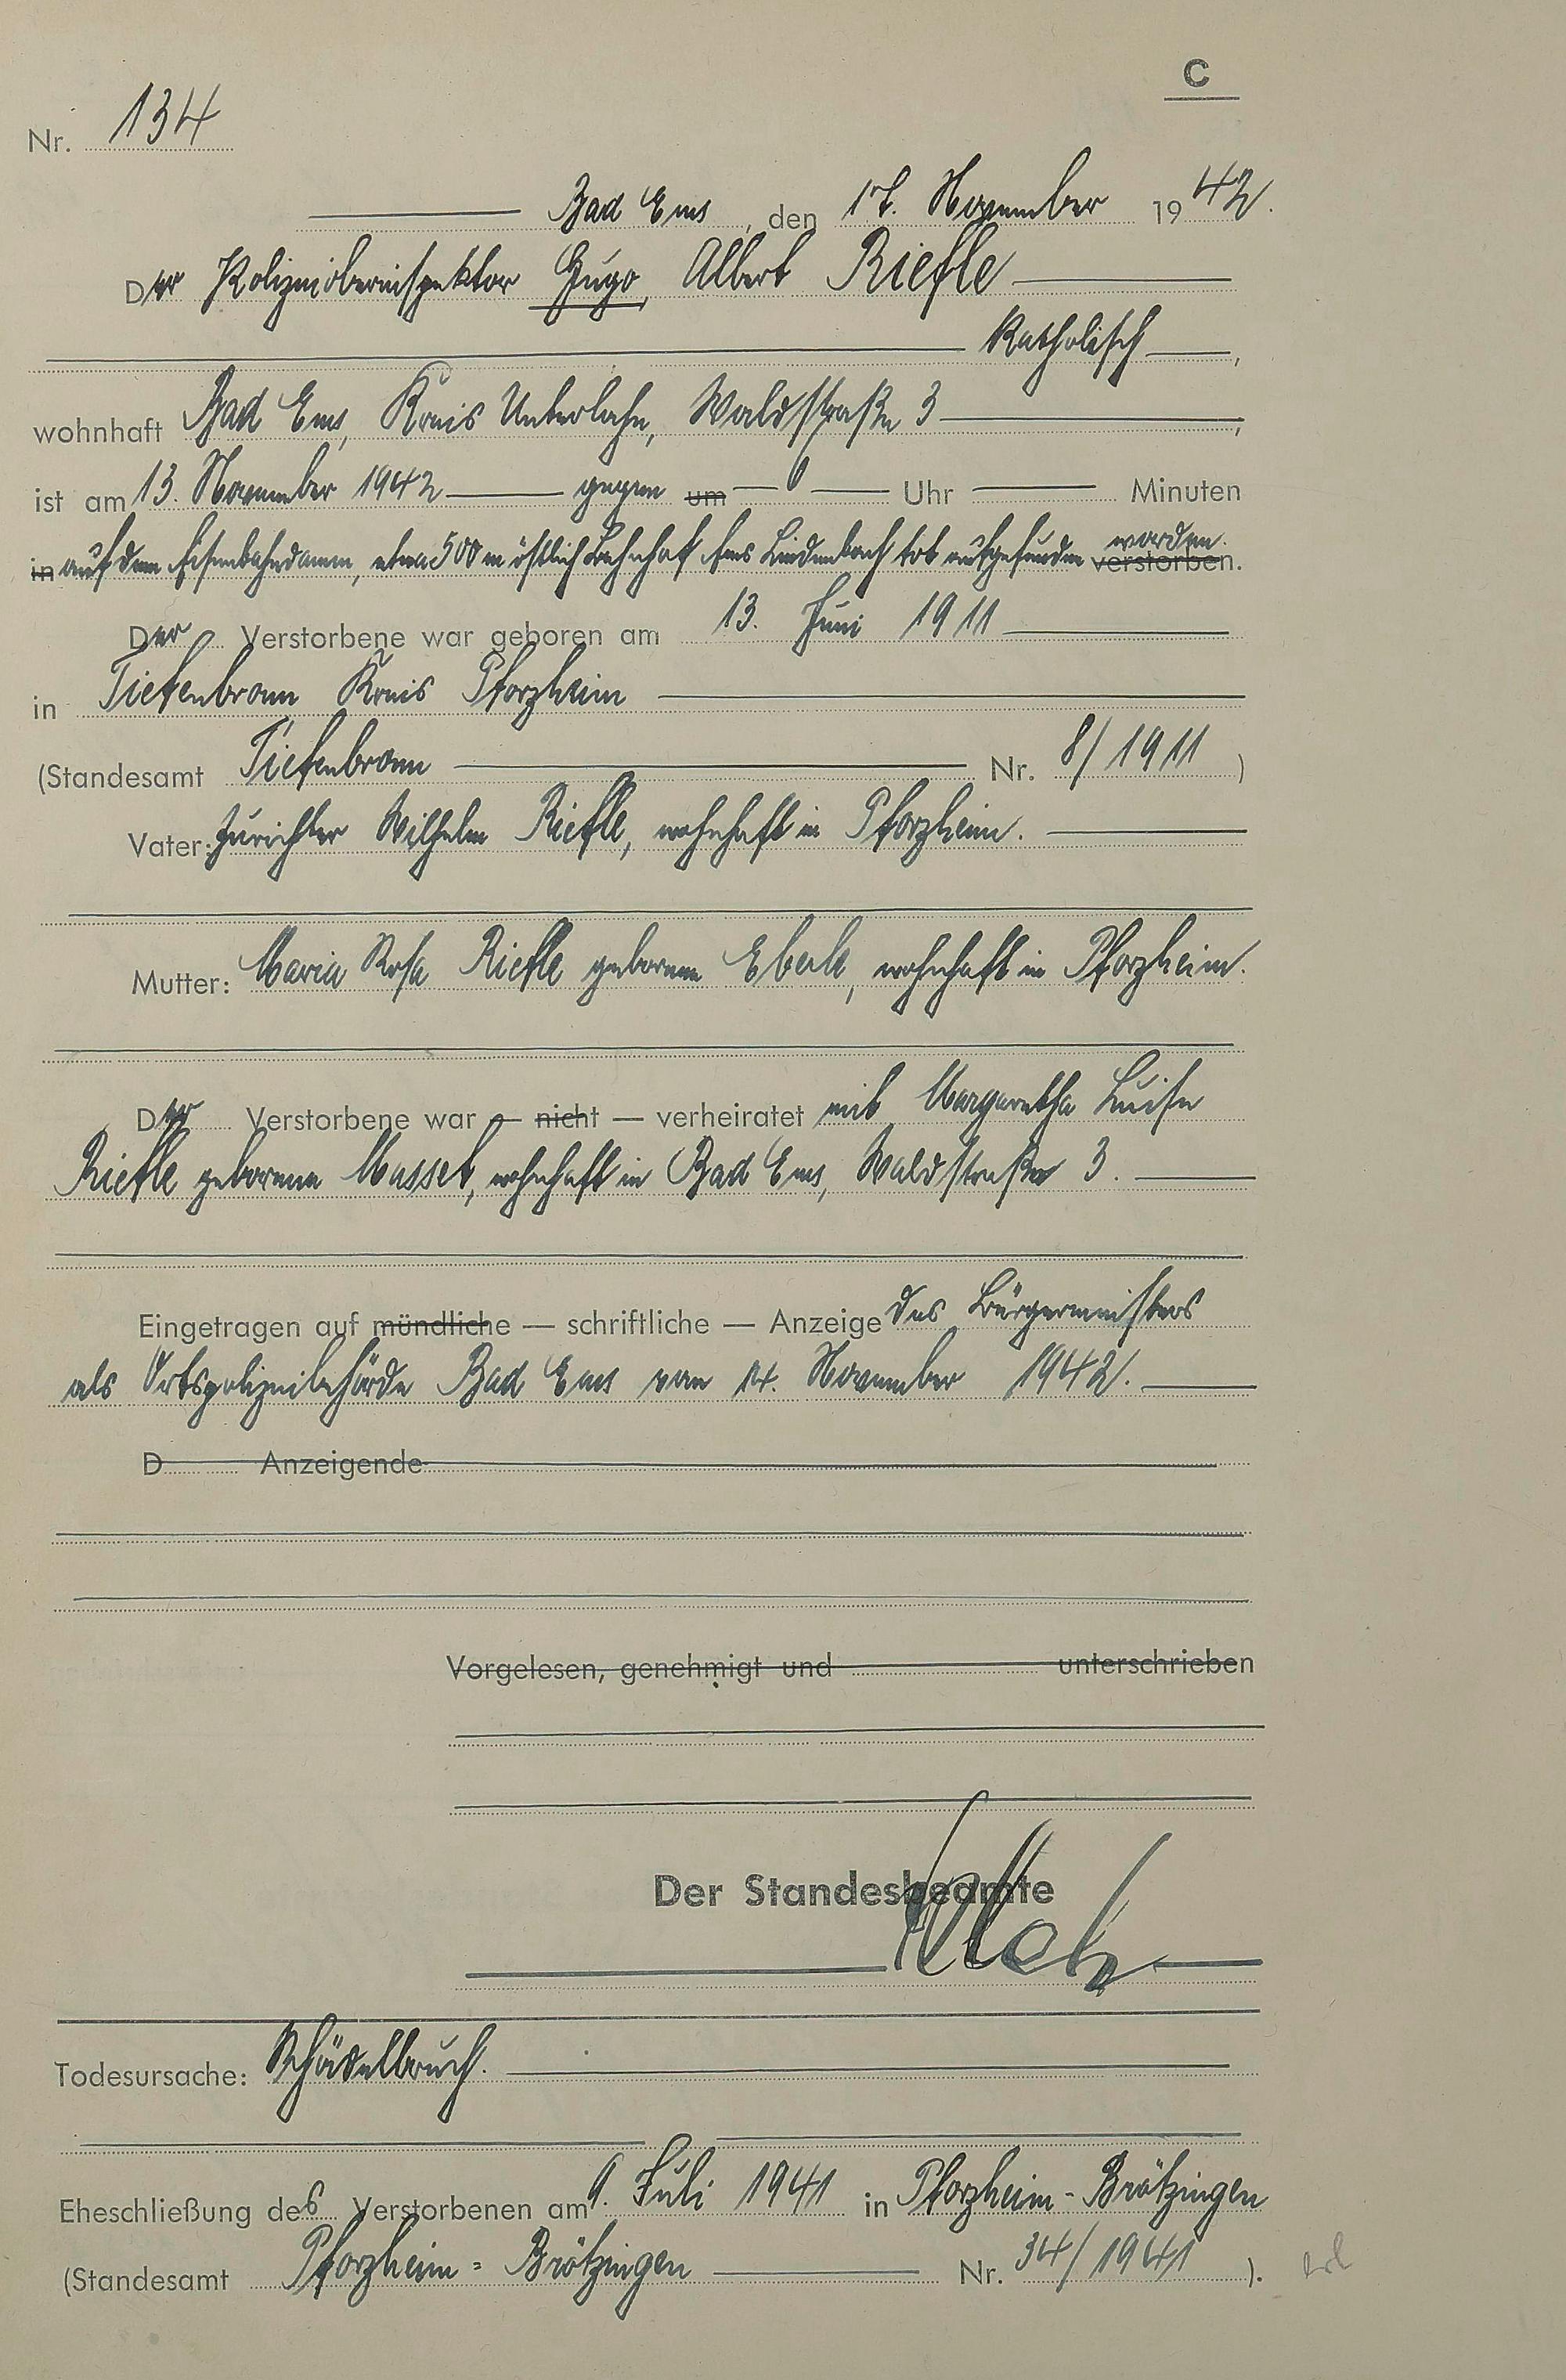 C
Nr. 134
Bad Ems, den 17. November 1942.
Der Polizeioberinspektor Hugo, Albert Riefle
katholisch,
wohnhaft Bad Ems, Kreis Unterlahn, Waldstraße 3,
ist am 13. November 1942 gegen um Uhr Minuten
in auf dem Eisenbahndamm, etwa 500 m östlich Bahnhof Ems Lindenbach tot aufgefunden worden. verstorben.
Der Verstorbene war geboren am 13. Juni 1911
in Tiefenbronn Kreis Pforzheim
(Standesamt Tiefenbronn Nr. 8/1911)
Vater: Zurichter Wilhelm Riefle, wohnhaft in Pforzheim.
Mutter: Maria Rosa Riefle geborene Eberle, wohnhaft in Pforzheim.
Der Verstorbene war — nicht — verheiratet mit Margaretha Luise
Riefle geborene Musset, wohnhaft in Bad Ems, Waldstraße 3.
Eingetragen auf mündliche — schriftliche — Anzeige des Bürgermeisters
als Ortspolizeibehörde Bad Ems vom 14. November 1942.
D Anzeigende
Vorgelesen, genehmigt und unterschrieben
Der Standesbeamte
Todesursache: Schädelbruch.
Eheschließung des Verstorbenen am 9. Juli 1941 in Pforzheim-Brötzingen
(Standesamt Pforzheim=Brötzingen Nr. 34/1941).